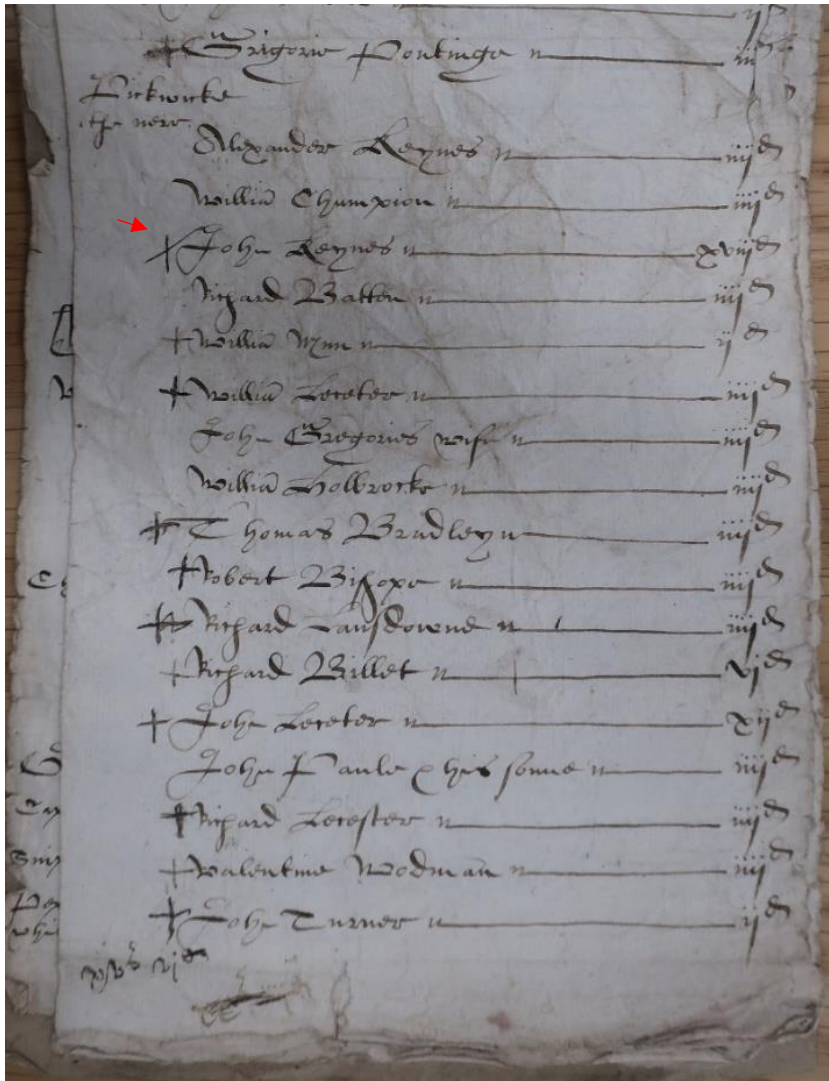 ij d
+ Grigorie Pontinge n iiij d
Pickwicke
the nere
Alexander Keynes n iiij d
Willia Champion n iiij d
+ John Keynes n xviij d
Richard Batten n iiij d
+ Willia Wynn n ij d
+ Willia Leceter n iiij d
John Gregories wife n iiij d
Willia Holbrocke n iiij d
+ Thomas Bradley n iiij d
+ Robert Bishope n iiij d
+ Richard Lansdowne n iiij d
+ Richard Billet n vj d
+ John Leceter n xij d
John Paule & his sonne n iiij d
+ Richard Lecester n iiij d
+ Valentine Wodman n iiij d
+ John Turner n ij d
vj d